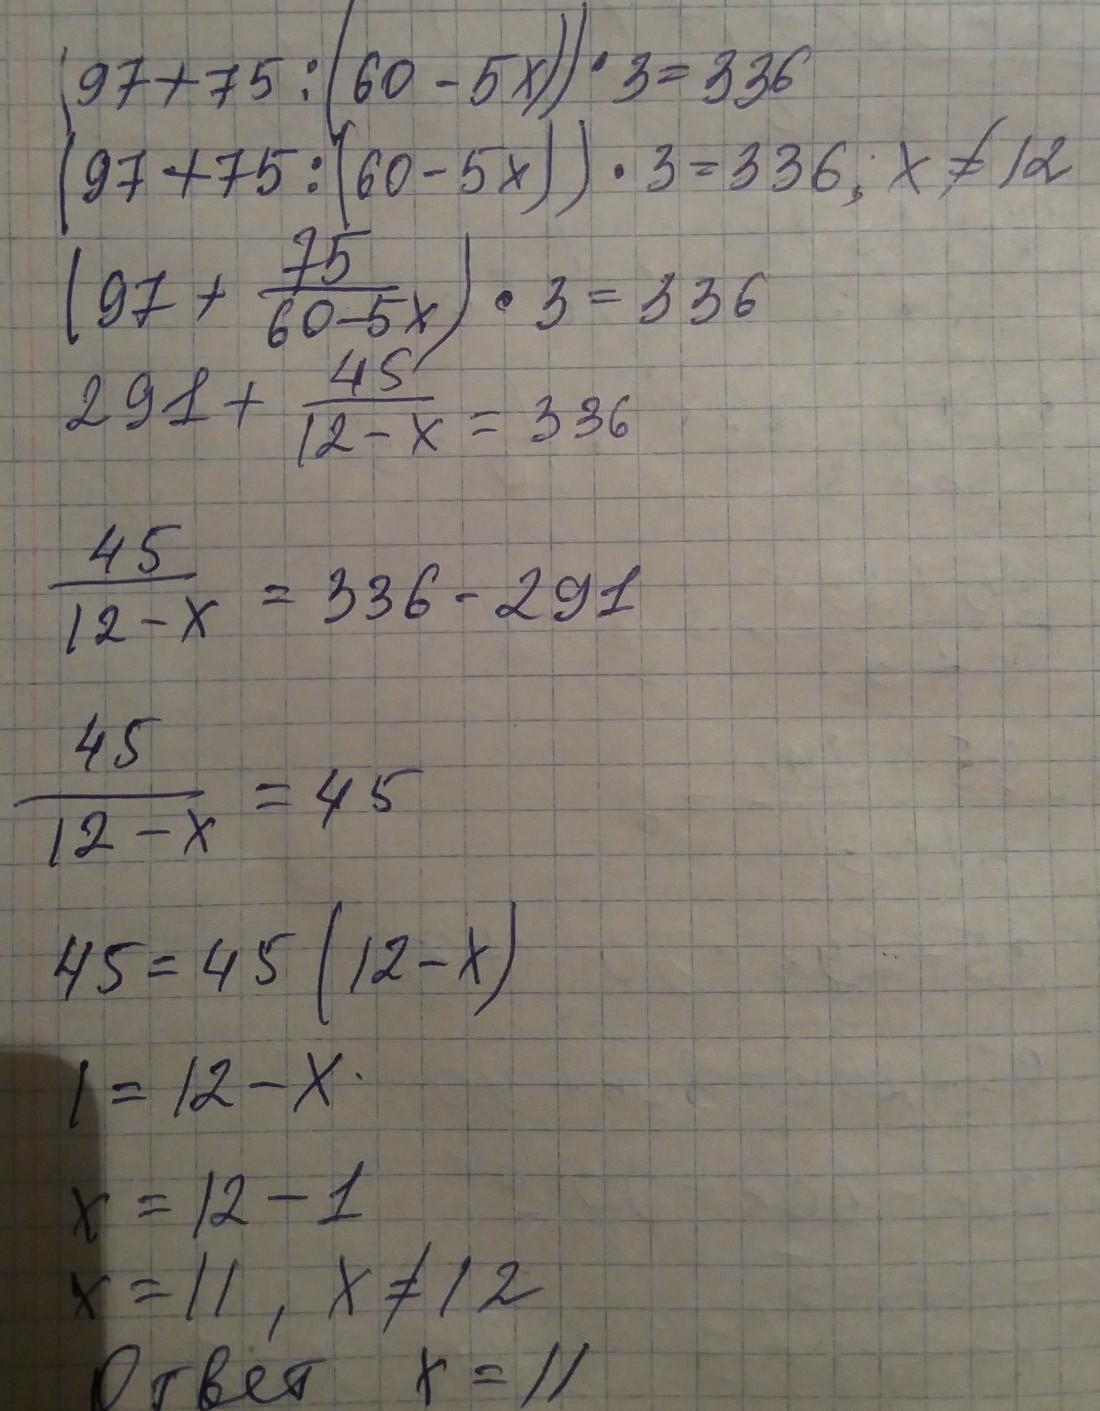 (97+75:(60-5x))·3=336
(97+75:(60-5x))·3=336; x≠12
(97+75/(60-5x))·3=336
291+45/(12-x)=336
45/(12-x)=336-291
45/(12-x)=45
45=45(12-x)
1=12-x
x=12-1
x=11, x≠12
Ответ x=11